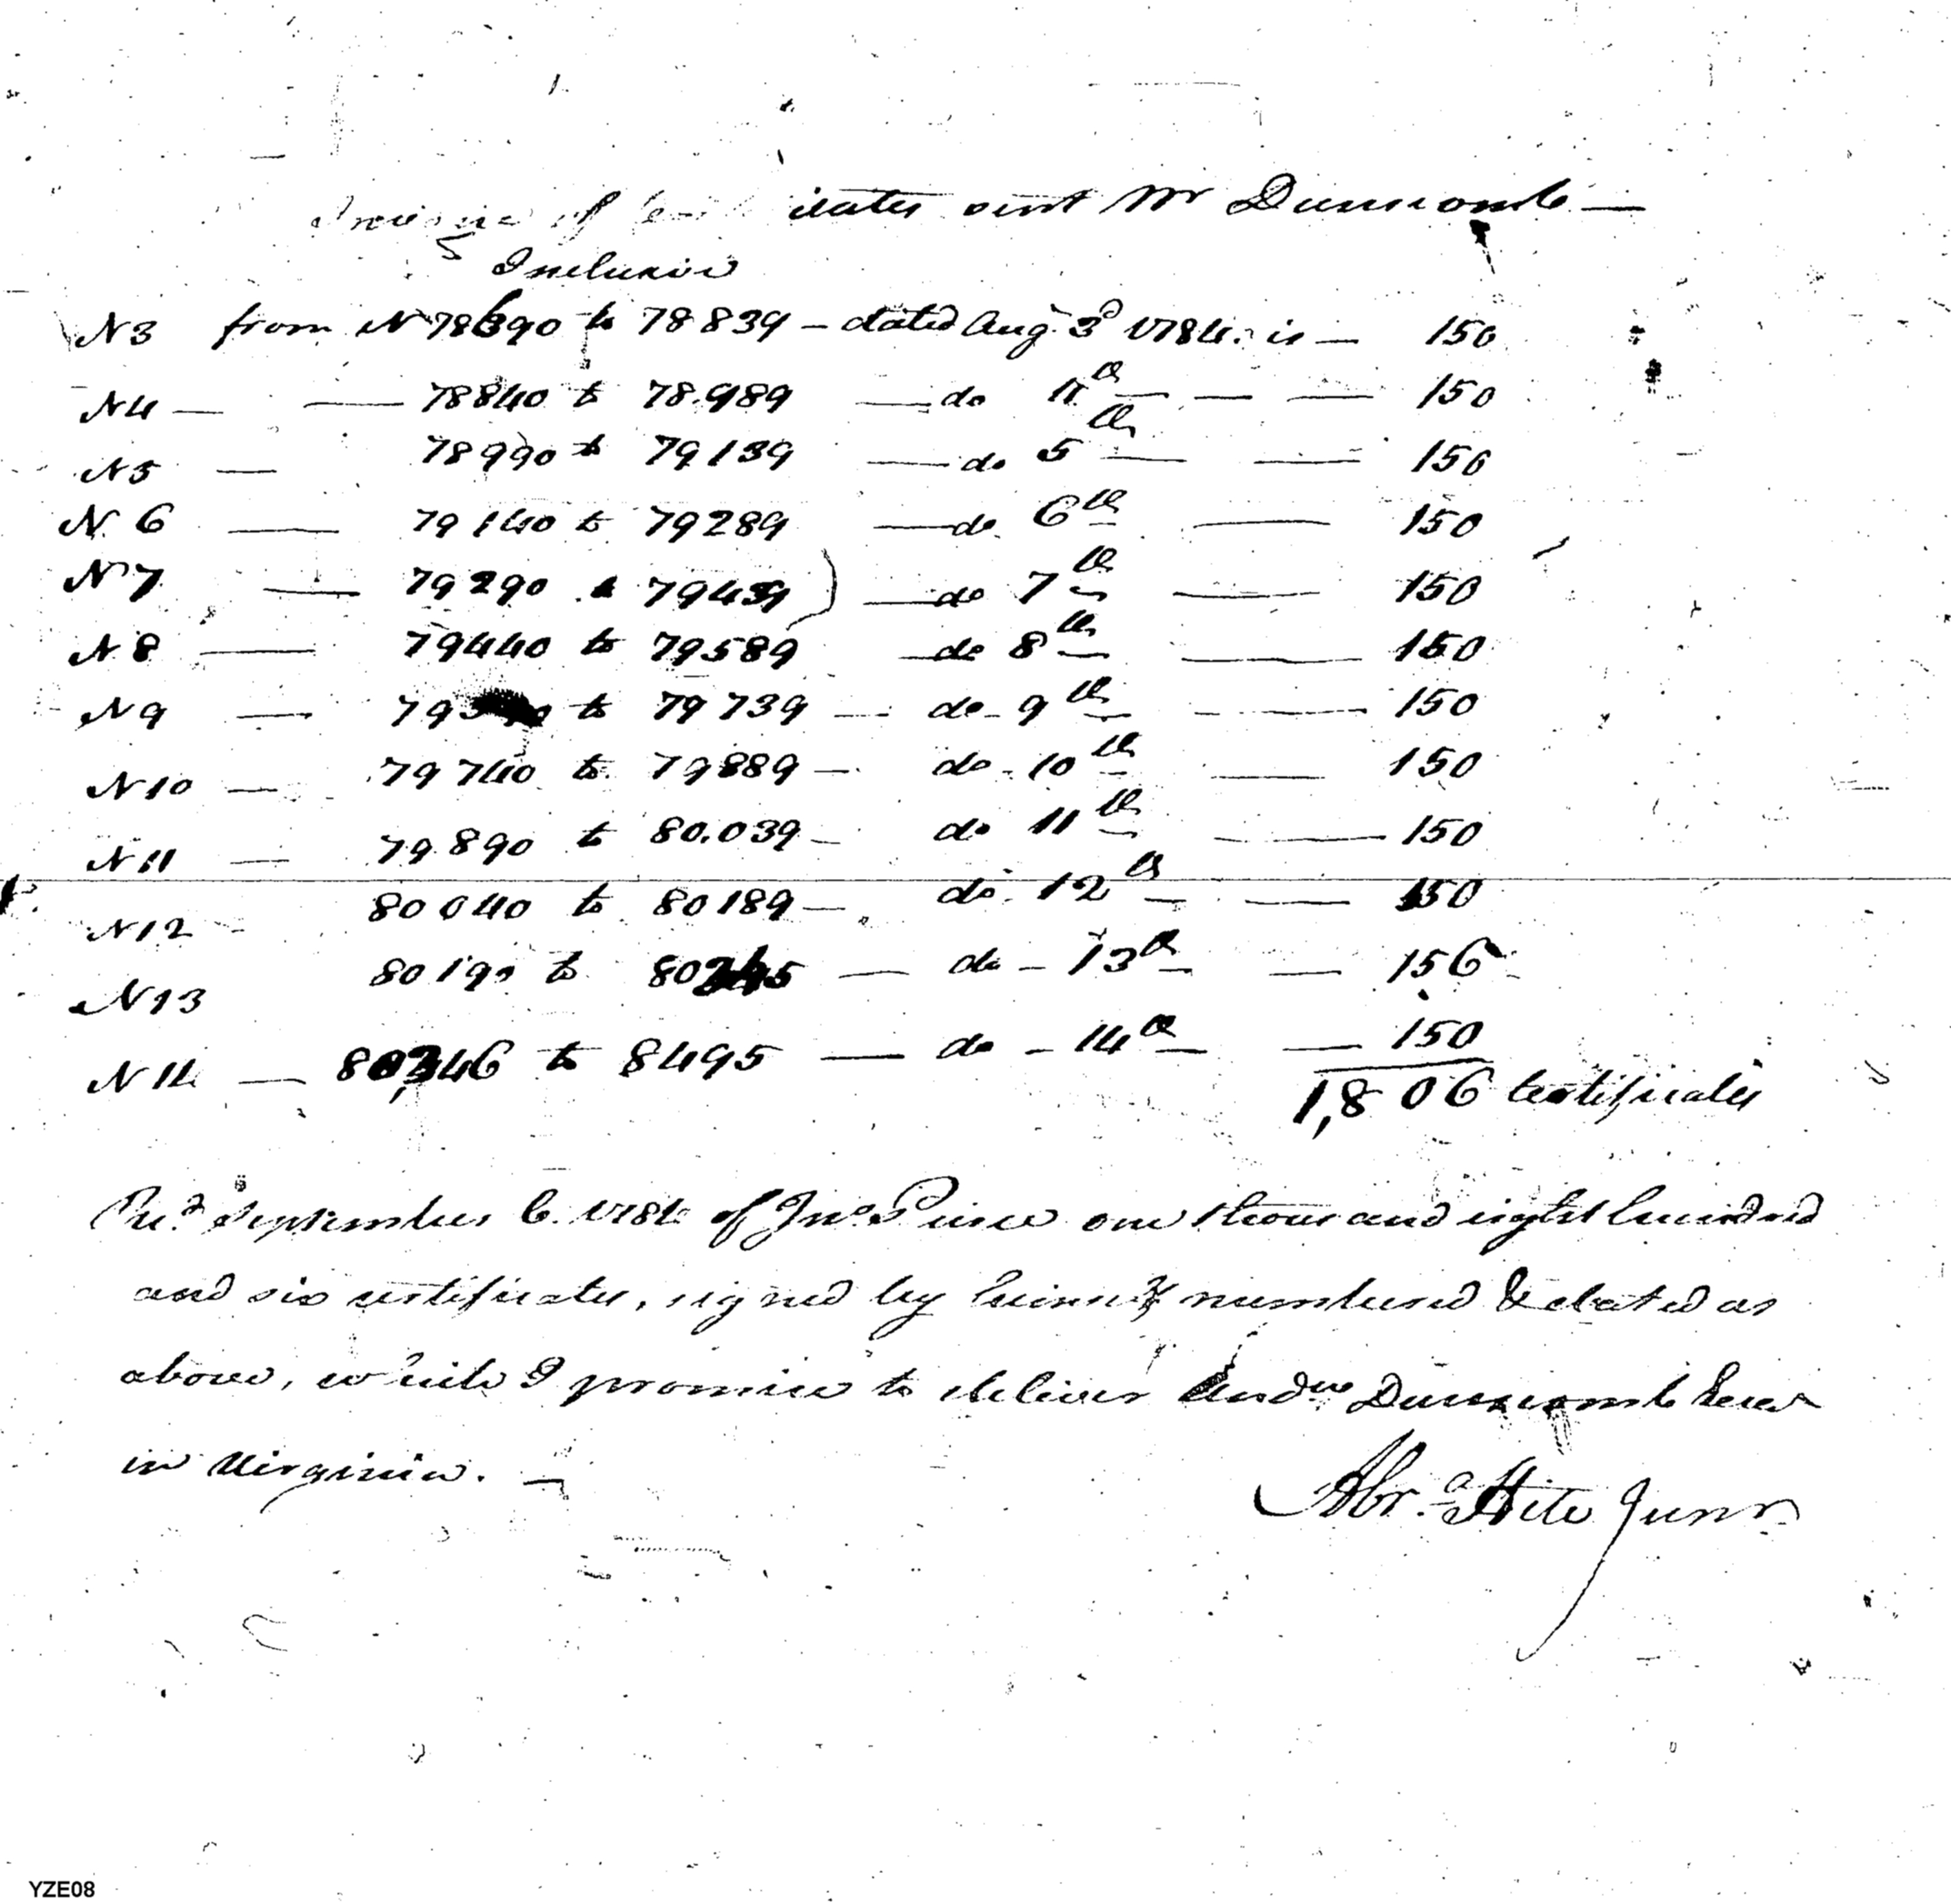 Invoice of icates sent Mr Dunscomb —
Inclusive
N3 from N 78690 to 78839 — dated Augt 3d 1784. is — 150
N4 — — 78840 to 78.989 — do 4th — — — 150
N5 — 78990 to 79139 — do 5th — — 150
N. 6 — 79140 to 79289 — do 6th — 150
N 7 — 79290 a 79439 ) — do 7th — 150
N. 8 — 79440 to 79589 — do 8th — 150
N 9 — to 79739 — do - 9th — 150
N 10 — 79740 to 79889 — do - 10th — 150
N 11 — 79890 to 80.039 — do 11th — 150
N 12 - 80040 to 80189 — do. 12th — 150
N 13 80190 to 80345 — do - 13th — 156
N 14 — 80,346 to 8495 — do - 14th — 150
1,806 Certificates
Recd September 6. 1784 of Jno Pierce one thousand eight hundred
and six certificates, signed by him & numbered & dated as
above, which I promise to deliver Andw Dunscomb Esqr
in Virginia. —
Abrm Hite Junr
YZE08